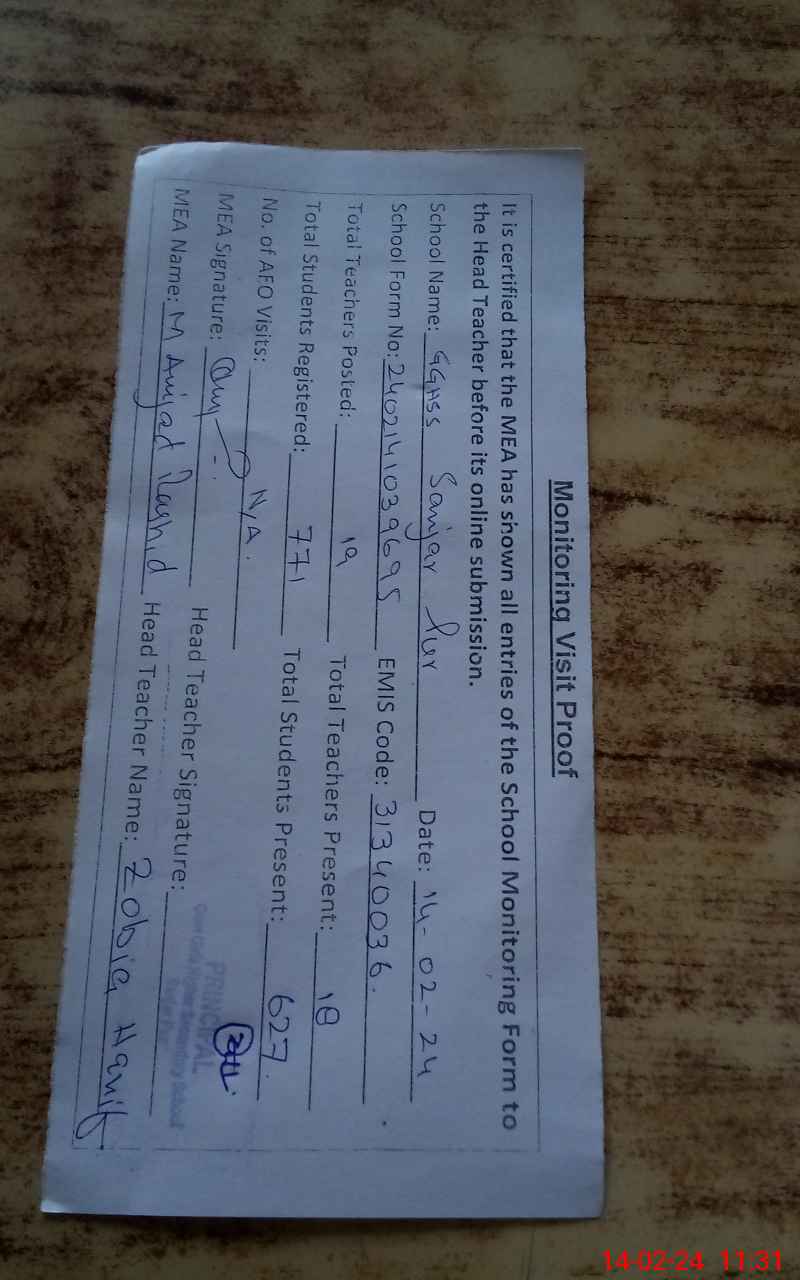 Monitoring Visit Proof
It is certified that the MEA has shown all entries of the School Monitoring Form to
the Head Teacher before its online submission.
School Name: GGHSS Sanjar Pur Date: 14-02-24
School Form No: 2402141039695 EMIS Code: 31340036.
Total Teachers Posted: 19 Total Teachers Present: 18
Total Students Registered: 771 Total Students Present: 627.
No. of AFO Visits: N/A.
MEA Signature: Head Teacher Signature:
MEA Name: M Amjad Rashid Head Teacher Name: Zobia Hanif
PRINCIPAL
Govt Girls Higher Secondary School
14-02-24 11:31